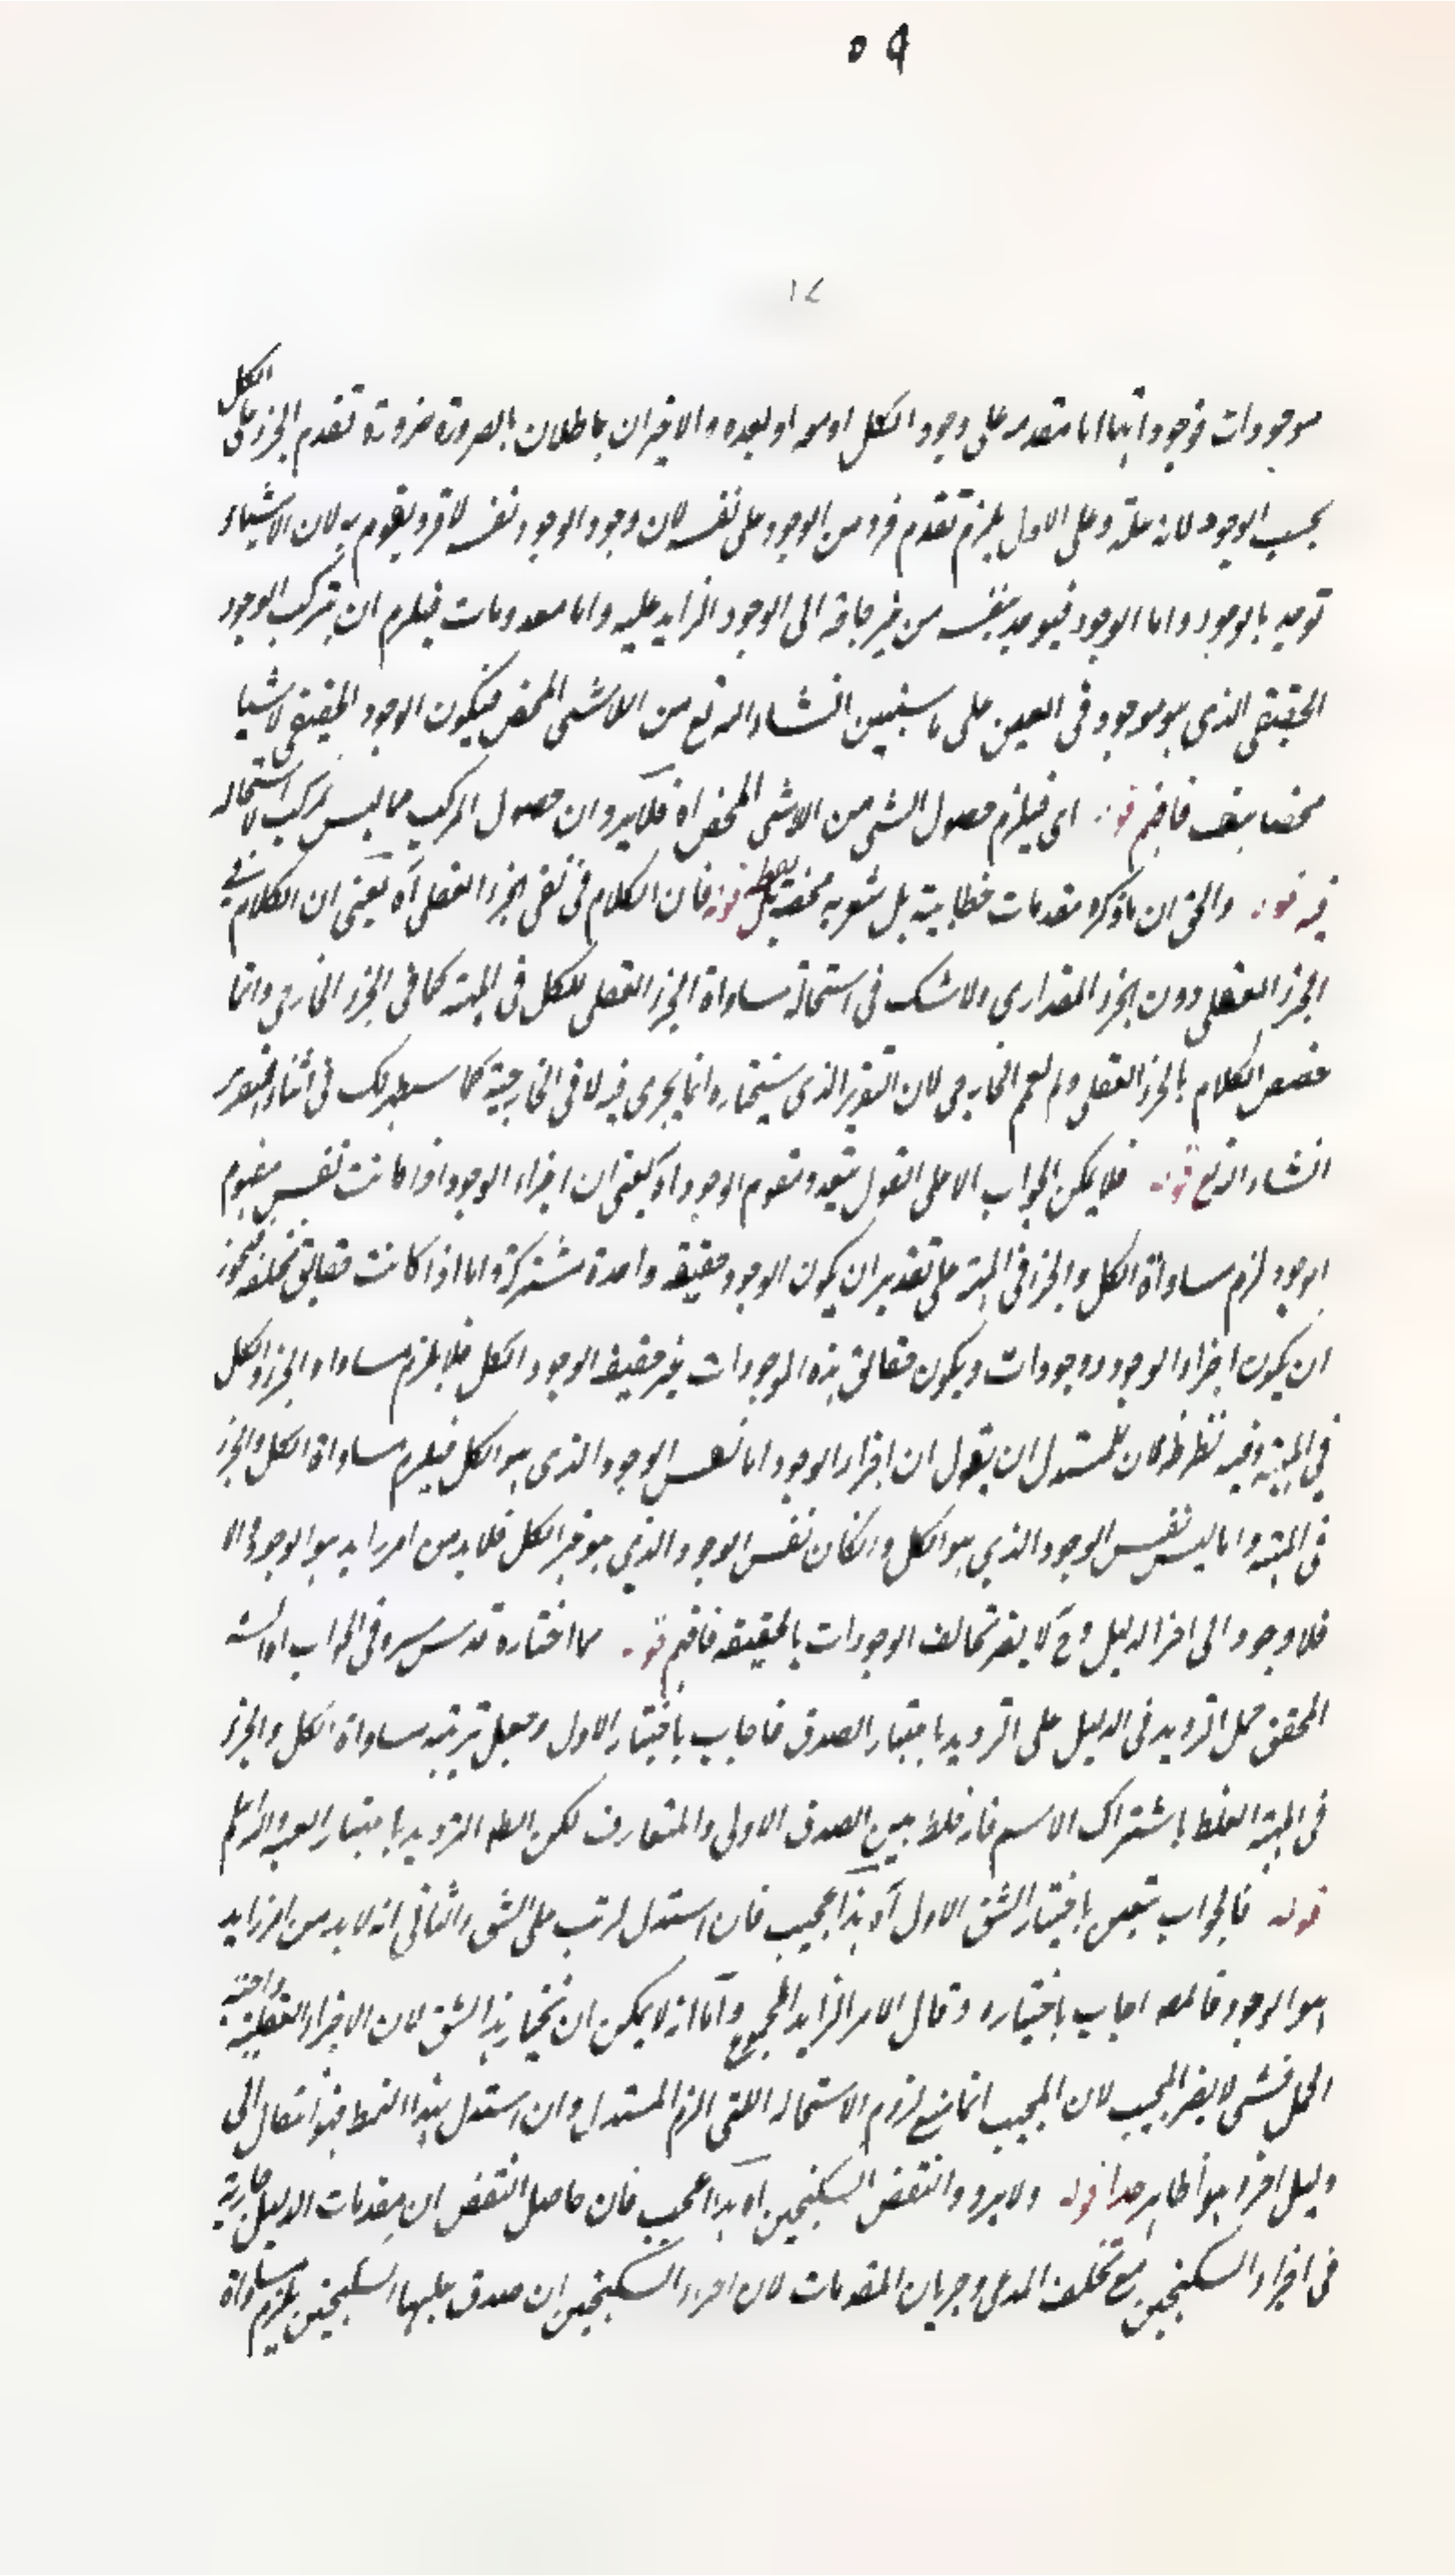 ٥٩
١٤
موجودات فوجوداتها اما متقدمة على وجود الكل او معه او بعده والاخيران باطلان بالضرورة ضرورة تقدم الجزء على الكل
بحسب الوجود لانه علة وعلى الاول يلزم تقدم فرد من الوجود على نفسه لان وجود الوجود نفسه لا فرد يقوم به لان الاشياء
توجد بالوجود واما الوجود فيوجد بنفسه من غير حاجة الى الوجود الزايد عليه واما معدومات فيلزم ان يتركب الوجود
الحقيقي الذي هو موجود في العين على ما سيبين انشاء الله تع من اللاشئ المحض فيكون الوجود الحقيقي لا شيا
محضا هف فافهم قوله اى فيلزم حصول الشئ من اللاشئ المحض اه فلا يرد ان حصول المركب مما ليس بمركب لا استحالة
فيه قوله والحق ان ما ذكره مقدمات خطابية بل شعرية محضة قوله فان الكلام في نفى الجزء العقلى آه يعنى ان الكلام في
الجزء العقلى دون الجزء المقدارى ولا شك في استحالة مساواة الجزء العقلى للكل في المهية كما في الجزء الخارجى وانما
خصص الكلام بالجزء العقلى ولم يعم الخارجى لان التقرير الذى سيختاره انما يجرى فيه لا في الخارجية كما سيظهر لك في اثناء التقرير
انشاء الله تع قوله فلا يمكن الجواب الا على القول بتعدد مفهوم الوجود اه يعنى ان اجزاء الوجود اذا كانت نفس مفهوم
الوجود لزم مساواة الكل والجزء في المهية على تقدير ان يكون الوجود حقيقة واحدة مشتركة واما اذا كانت حقايق مختلفة فيجوز
ان يكون اجزاء الوجود وجودات ويكون حقائق هذه الوجودات غير حقيقة الوجود الكل فلا يلزم مساواة الجزء والكل
في المهية وفيه نظر ظ لان للمستدل ان يقول ان اجزاء الوجود اما نفس الوجود الذى هو الكل فيلزم مساواة الكل والجزء
في المهية واما ليس نفس الوجود الذي هو الكل وانكان نفس الوجود الذي هو غير الكل فلا بد من امر زايد هو الوجود والا
فلا وجود الى اخر الدليل وح لا يضر تخالف الوجودات بالحقيقة فافهم قوله مما اختاره قدس سره في الجواب اه
المحقق حمل الترديد في الدليل على الترديد باعتبار الصدق فاجاب باختيار الاول وجعل ترتبه مساواة الكل والجزء
في المهية الغلط باشتراك الاسم فانه غلط بين الصدق الاولى والمتعارف لكن الظ الترديد باعتبار العينية والله اعلم
قوله فالجواب يتعين باختيار الشق الاول آه هذا عجيب فان المستدل رتب على الشق الثانى انه لا بد من امر زايد
هو الوجود فالمص اجاب باختياره وقال الامر الزايد المجموع واما انه لا يمكن ان يختار هذا الشق لان الاجزاء العقلية واجبة
الحمل فشئ لا يضر المجيب لان المجيب انما يمنع لزوم الاستحالة اللتى الزم المستدل وان استدل بهذا النمط فهو انتقال الى
دليل اخر وهو ظاهر جدا قوله ولا يرد والنقض السكنجبين اه هذا عجيب فان حاصل النقض ان مقدمات الدليل جارية
في اجزاء السكنجبين مع تخلف المدعى وجريان المقدمات لان اجزاء السكنجبين ان صدق عليها السكنجبين يلزم مساواة